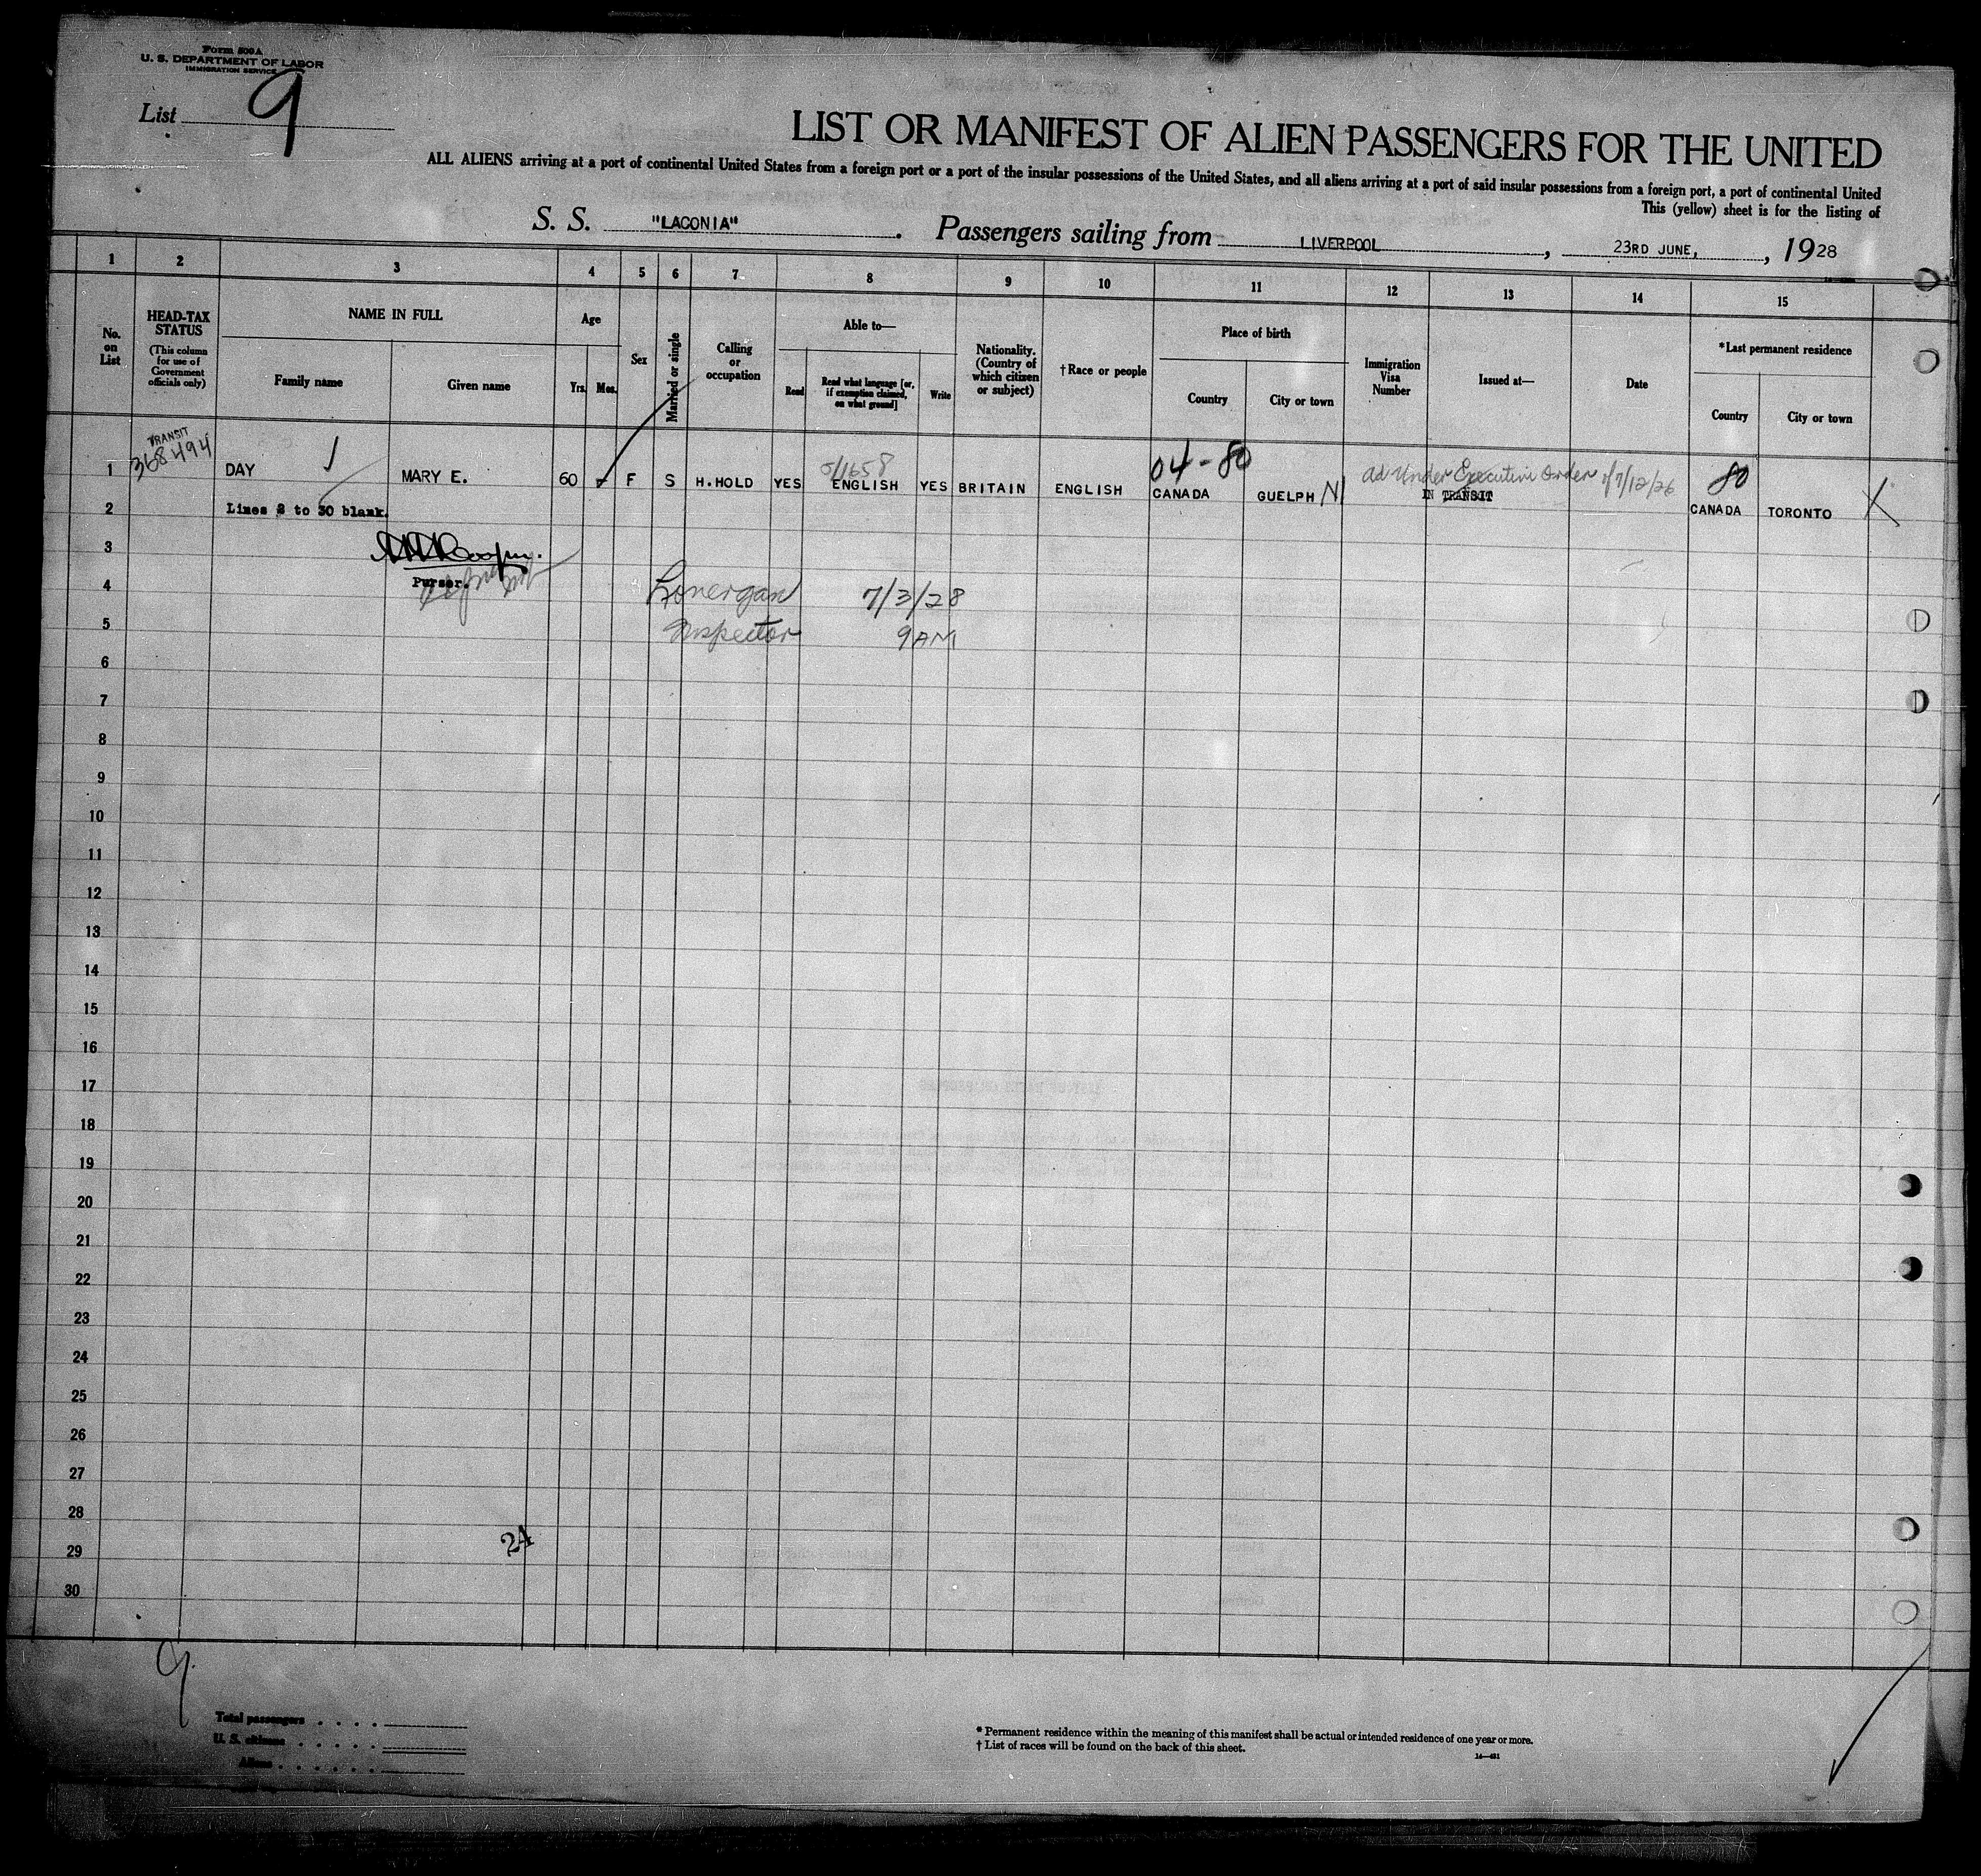 Form 500A
U. S. DEPARTMENT OF LABOR
IMMIGRATION SERVICE
List 9
LIST OR MANIFEST OF ALIEN PASSENGERS FOR THE UNITED
ALL ALIENS arriving at a port of continental United States from a foreign port or a port of the insular possessions of the United States, and all aliens arriving at a port of said insular possessions from a foreign port, a port of continental United
This (yellow) sheet is for the listing of
S. S. "LACONIA". Passengers sailing from LIVERPOOL, 23RD JUNE, , 1928
1 2 3 4 5 6 7 8 9 10 11 12 13 14 15
No. on List
HEAD-TAX STATUS
(This column for use of Government officials only)
NAME IN FULL
Family name
Given name
Age
Yrs. Mos.
Sex
Married or single
Calling or occupation
Able to—
Read
Read what language [or, if exemption claimed, on what ground]
Write
Nationality. (Country of which citizen or subject)
†Race or people
Place of birth
Country
City or town
Immigration Visa Number
Issued at—
Date
*Last permanent residence
Country
City or town
TRANSIT
368494
5/1658
04-80
ad Under Executive Order
7/12/26
80
1 DAY MARY E. 60 F S H.HOLD YES ENGLISH YES BRITAIN ENGLISH CANADA GUELPH N IN TRANSIT CANADA TORONTO X
2 Lines 2 to 30 blank.
3
Purser.
4 Lonergan 7/3/28
5 Inspector 9AM
6
7
8
9
10
11
12
13
14
15
16
17
18
19
20
21
22
23
24
25
26
27
28
24
29
30
9
Total passengers . . . .
U. S. citizens . . . . .
Aliens . . . . . .
* Permanent residence within the meaning of this manifest shall be actual or intended residence of one year or more.
† List of races will be found on the back of this sheet.
14—431